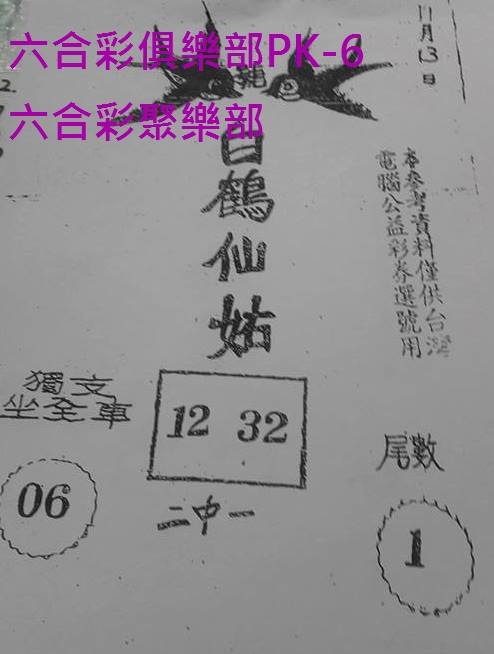 六合彩俱樂部PK-6
六合彩聚樂部
11月13日
白鶴仙姑
本參考資料僅供台灣
電腦公益彩券選號用
獨支
坐全車
06
12 32
二中一
尾數
1